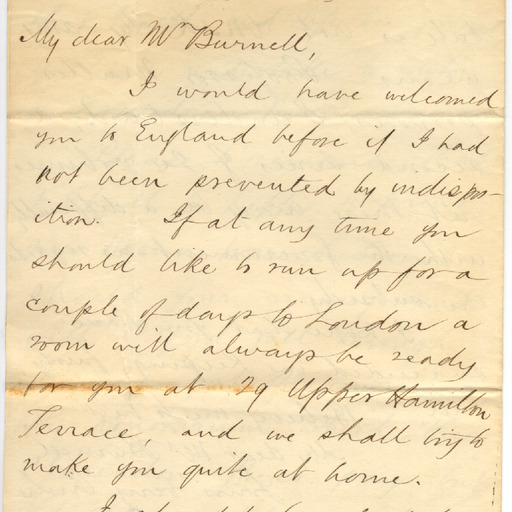 My dear Mr Burnell,
I would have welcomed
you to England before if I had
not been prevented by indispos-
ition. If at any time you
should like to run up for a
couple of days to London a
room will always be ready
for you at 29 Upper Hamilton
Terrace, and we shall try to
make you quite at home.